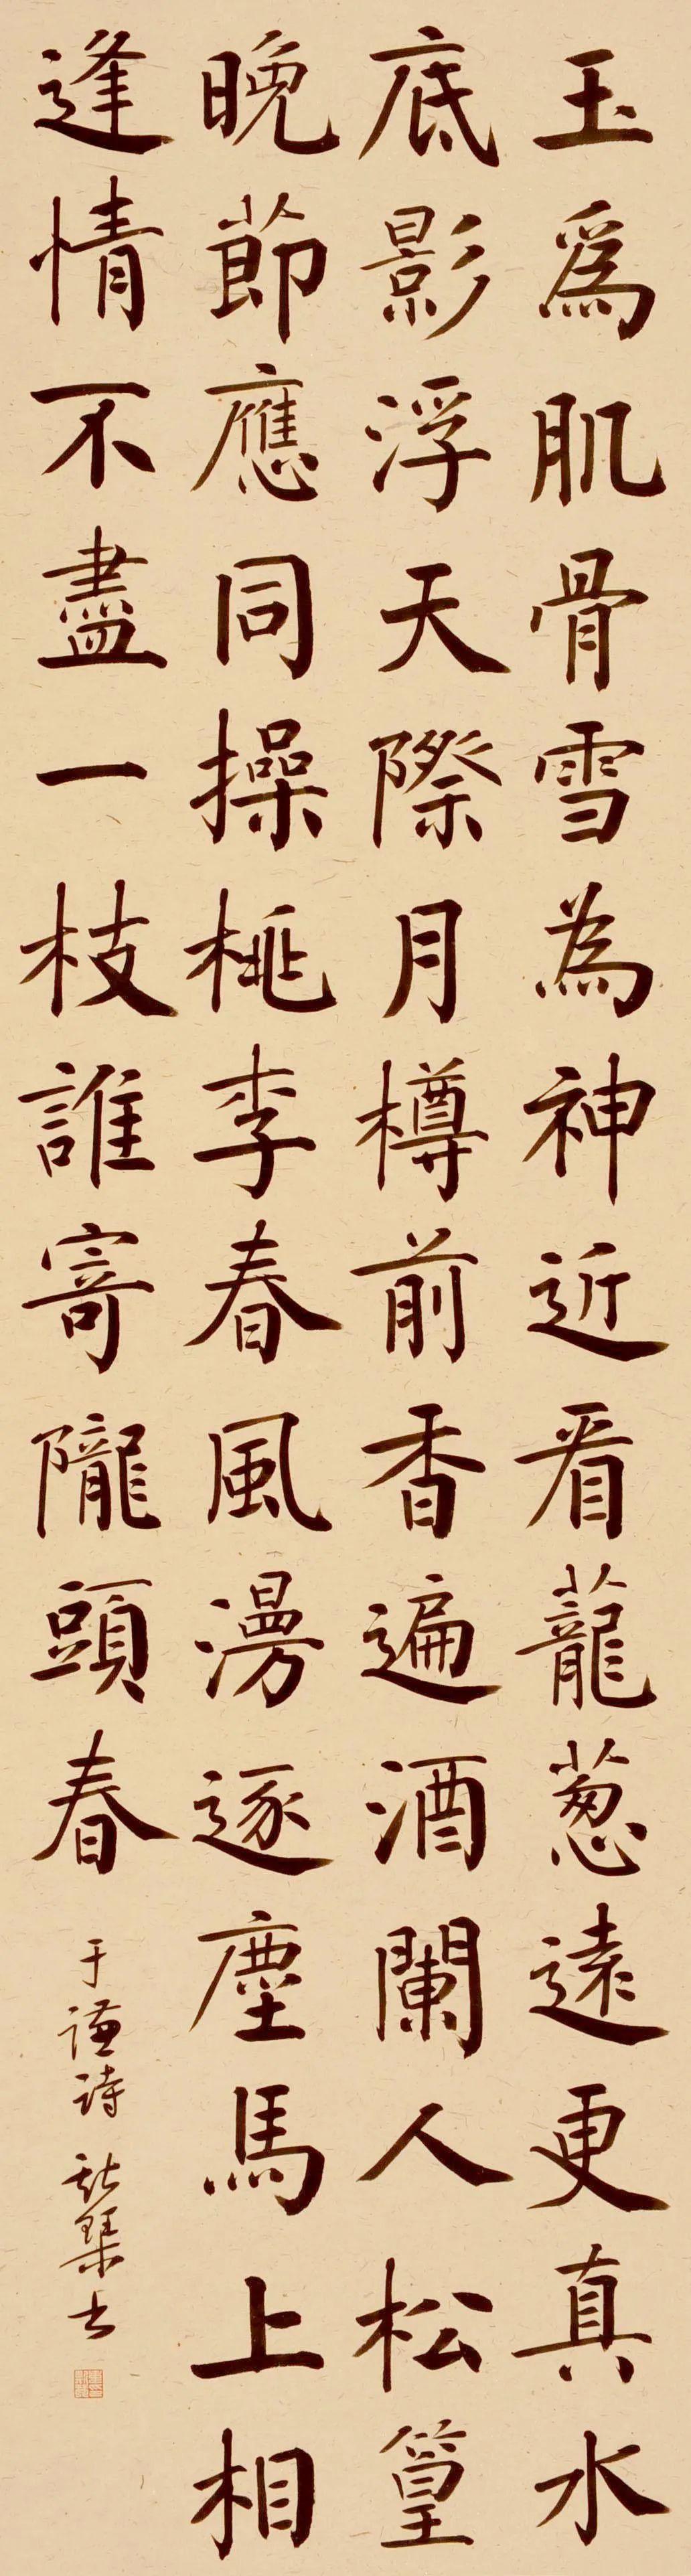 玉爲肌骨雪為神近看蘢蔥遠更真水
底影浮天際月樽前香遍酒闌人松篁
晚節應同操桃李春風漫逐塵馬上相
逢情不盡一枝誰寄隴頭春
于谦诗